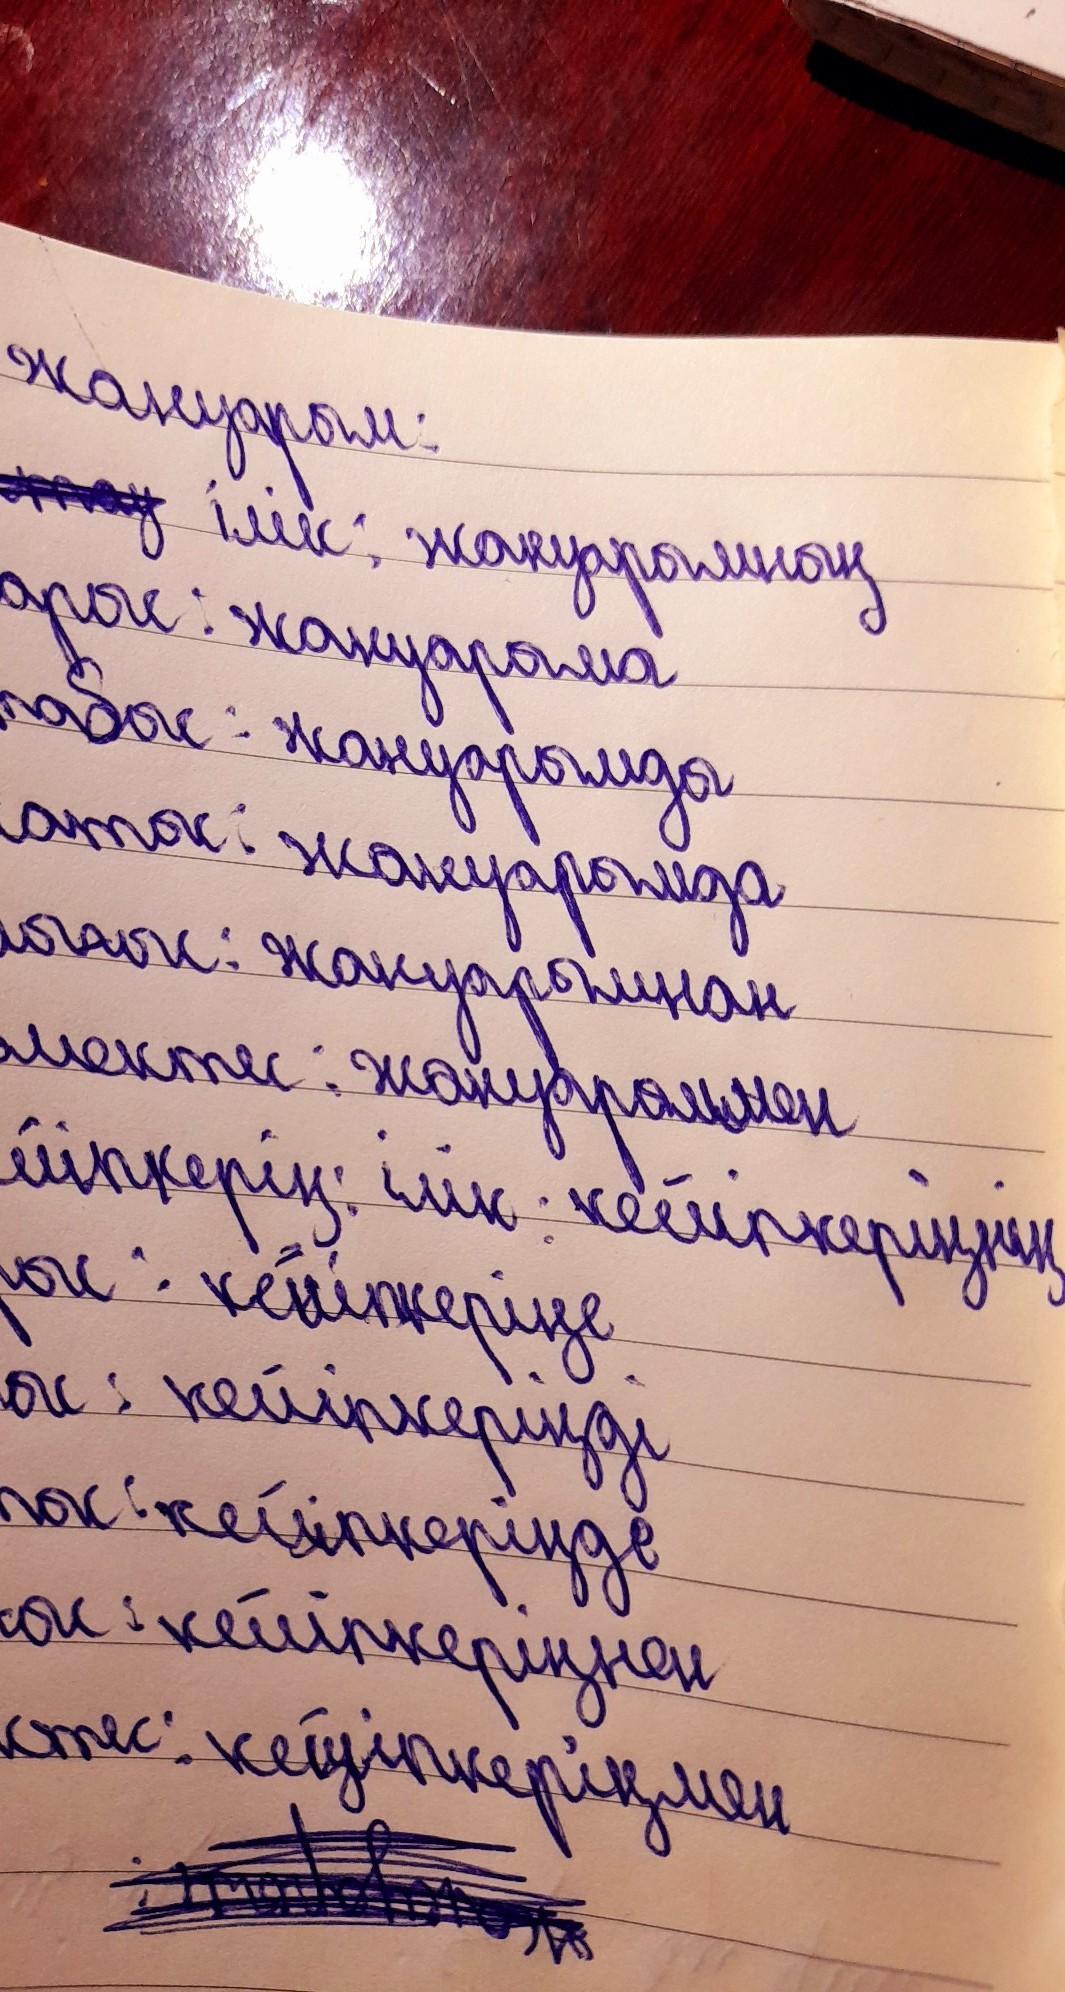 жануарым:
ілік: жануарымның
арыс: жануарыма
табыс: жануарымды
атыс: жануарымда
ығыс: жануарымнан
мектес: жануарыммен
йіпкерің: ілік: кейіпкеріңнің
рыс: кейіпкеріңе
ыс: кейіпкеріңді
тыс: кейіпкеріңде
ыс: кейіпкеріңнен
ктес: кейіпкеріңмен